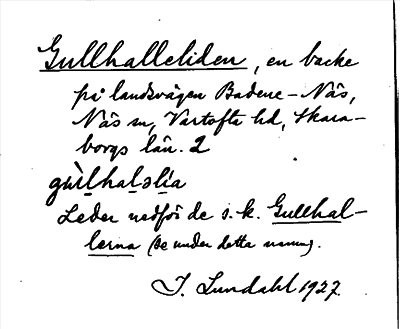 Gullhalleliden, en backe
på landsvägen Badene - Nås,
Nås sn, Vartofta hd, Skara-
borgs län. 2
gu̇lhaləlia
Leder nedför de s.k. Gullhal-
lerna (se under detta namn).
I. Lundahl 1927.